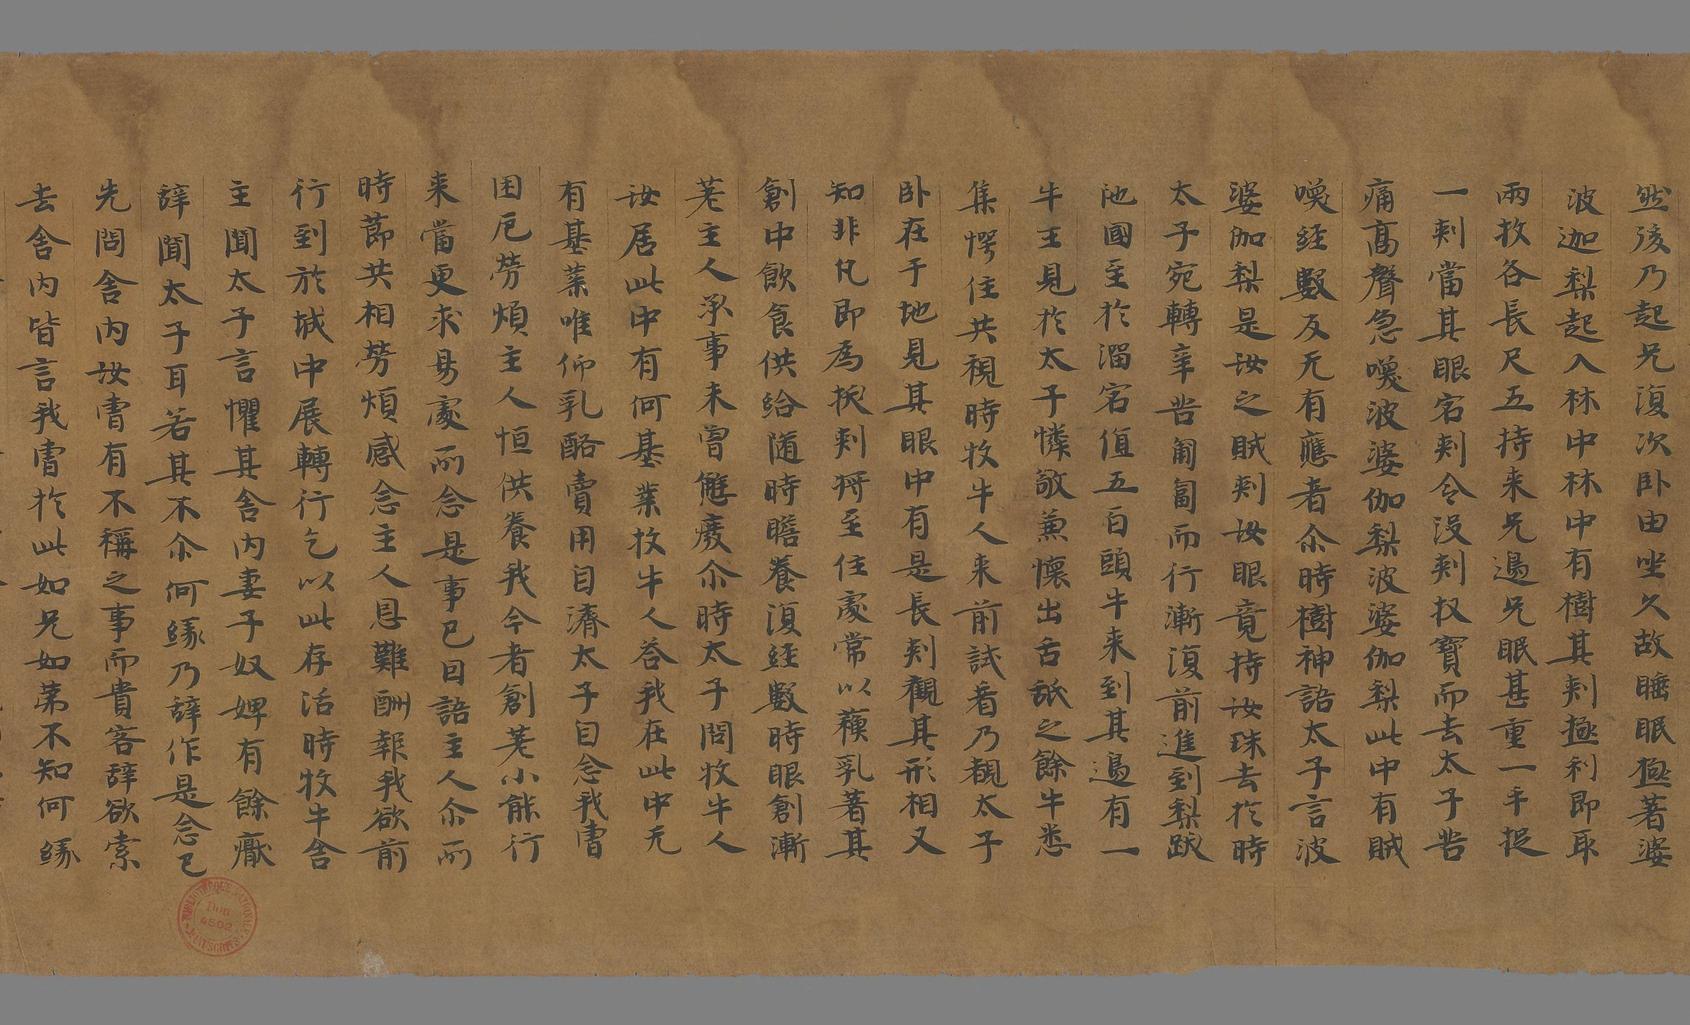 然後乃起兄復次卧由坐久故睡眠極著婆
波迦梨起入林中林中有樹其刾極利即取
兩枚各長尺五持来兄邊兄眠甚重一手捉
一刾當其眼宕刾令没刾扠寶而去太子甞
痛高聲急喚波婆伽梨波婆伽梨此中有賊
喚經數反无有應者尒時樹神語太子言波
婆伽梨是汝之賊刾汝眼竟持汝珠去扵時
太子宛轉辛苦匍匐而行漸復前進到梨跋
池國主扵澑宕值五百頭牛来到其邊有一
牛王見扵太子憐敬兼懷出舌舐之餘牛悉
集愕住共視時牧牛人来前試看乃覩太子
卧在于地見其眼中有是長刾觀其形相又
知非凡即為拔刾將至住處常以蘓乳著其
創中飲食供給随時瞻養復經數時眼創漸
差主人承事未曾懈廢尒時太子問牧牛人
汝居此中有何基業牧牛人荅我在此中无
有基業唯仰乳酪賣用自濟太子自念我曹
困厄勞煩主人恒供養我今者創差小能行
来當更求易處而念是事已目語主人尒所
時莭共相勞煩感念主人恩難酬報我欲前
行到扵城中展轉行乞以此存活時牧牛舎
主聞太子言懼其舎内妻子奴婢有餘癈
辤聞太子耳若其不尒何緣乃辤作是念已
先問舎内汝曹有不稱之事而貴客辤欲索
去舎内皆言我曹扵此如兄如弟不知何緣
Don
4502